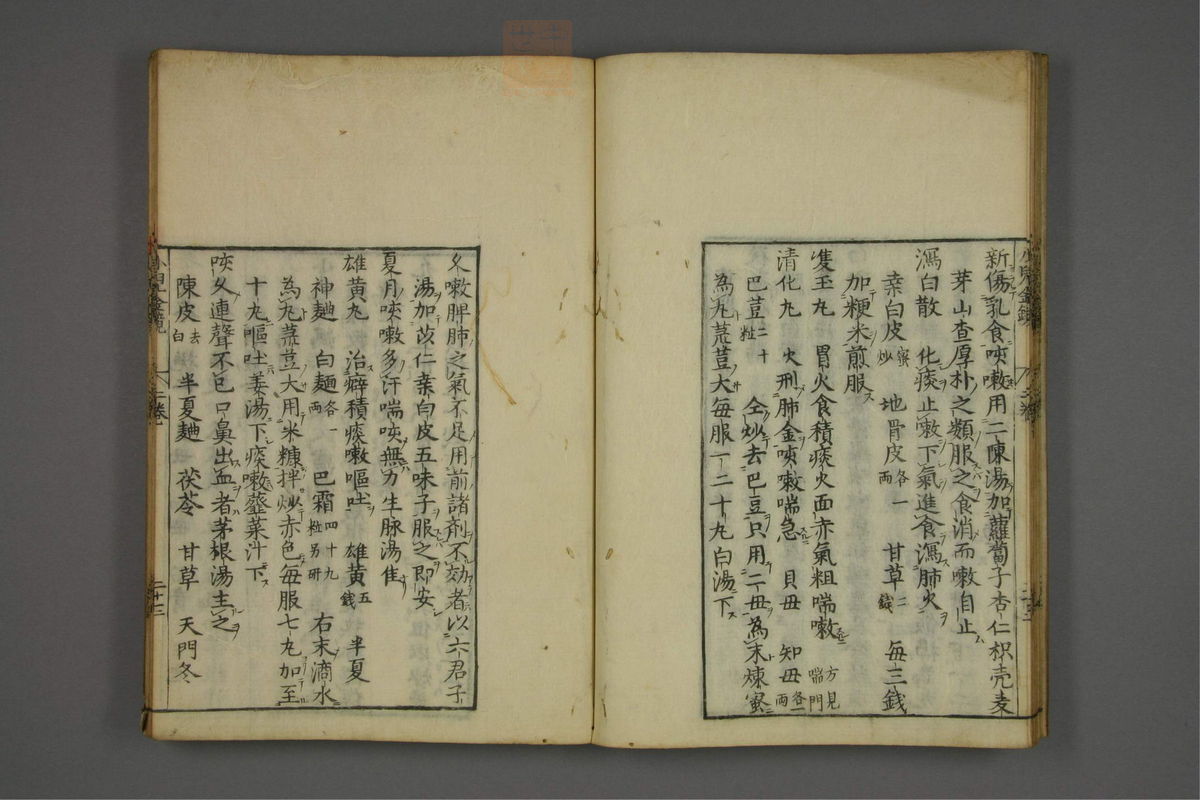 新傷乳食咳嗽用二陳湯加蘿蔔子杏仁枳壳麦
芽山查厚朴之類服之食消而嗽自止
瀉白散 化痰止嗽下氣進食瀉肺火
桒白皮蜜炒 地骨皮各一兩 甘草二錢 每三錢
加粳米煎服
隻玉丸 胃火食積痰火面赤氣粗喘嗽 方見喘門
清化丸 火刑肺金咳嗽喘急 貝毋 知毋各一兩
巴荳二十粒 仝炒去巴豆只用二毋為末煉蜜
為丸菉荳大每服一二十丸白湯下
久嗽脾肺之氣不足用前諸剤不効者以六君子
湯加苡仁桒白皮五味子服之即安
夏月咳嗽多汗喘咳無力生脉湯隹
雄黄丸 治癖積痰嗽嘔吐 雄黄五錢 半夏
神麯 白麺各一兩 巴霜四十九粒另研 右末滴水
為丸菉荳大用米糠拌炒赤色每服七丸加至
十丸嘔吐姜湯下痰嗽虀菜汁下
咳久連聲不已口鼻出血者茅根湯主之
陳皮去白 半夏麯 茯苓 甘草 天門冬
小兒金鏡 二卷 二十三